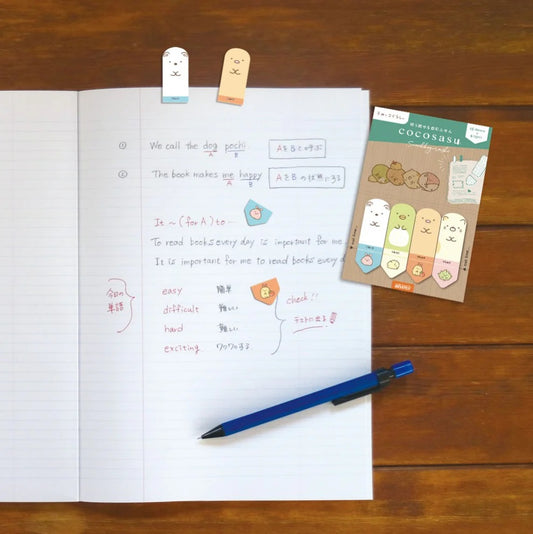 ① We call the dog pochi
A B
AをBと呼ぶ
② The book makes me happy
A B
AをBの状態にする
It ～ (for A) to …
To read books every day is important for me.
It is important for me to read books every d
今日の単語
easy 簡単
difficult 難しい
hard 難しい
exciting ワクワクする
check!!
テストに出る
すみっコぐらし
切り離せる着せふせん
cocosasu
Sumikkogurashi